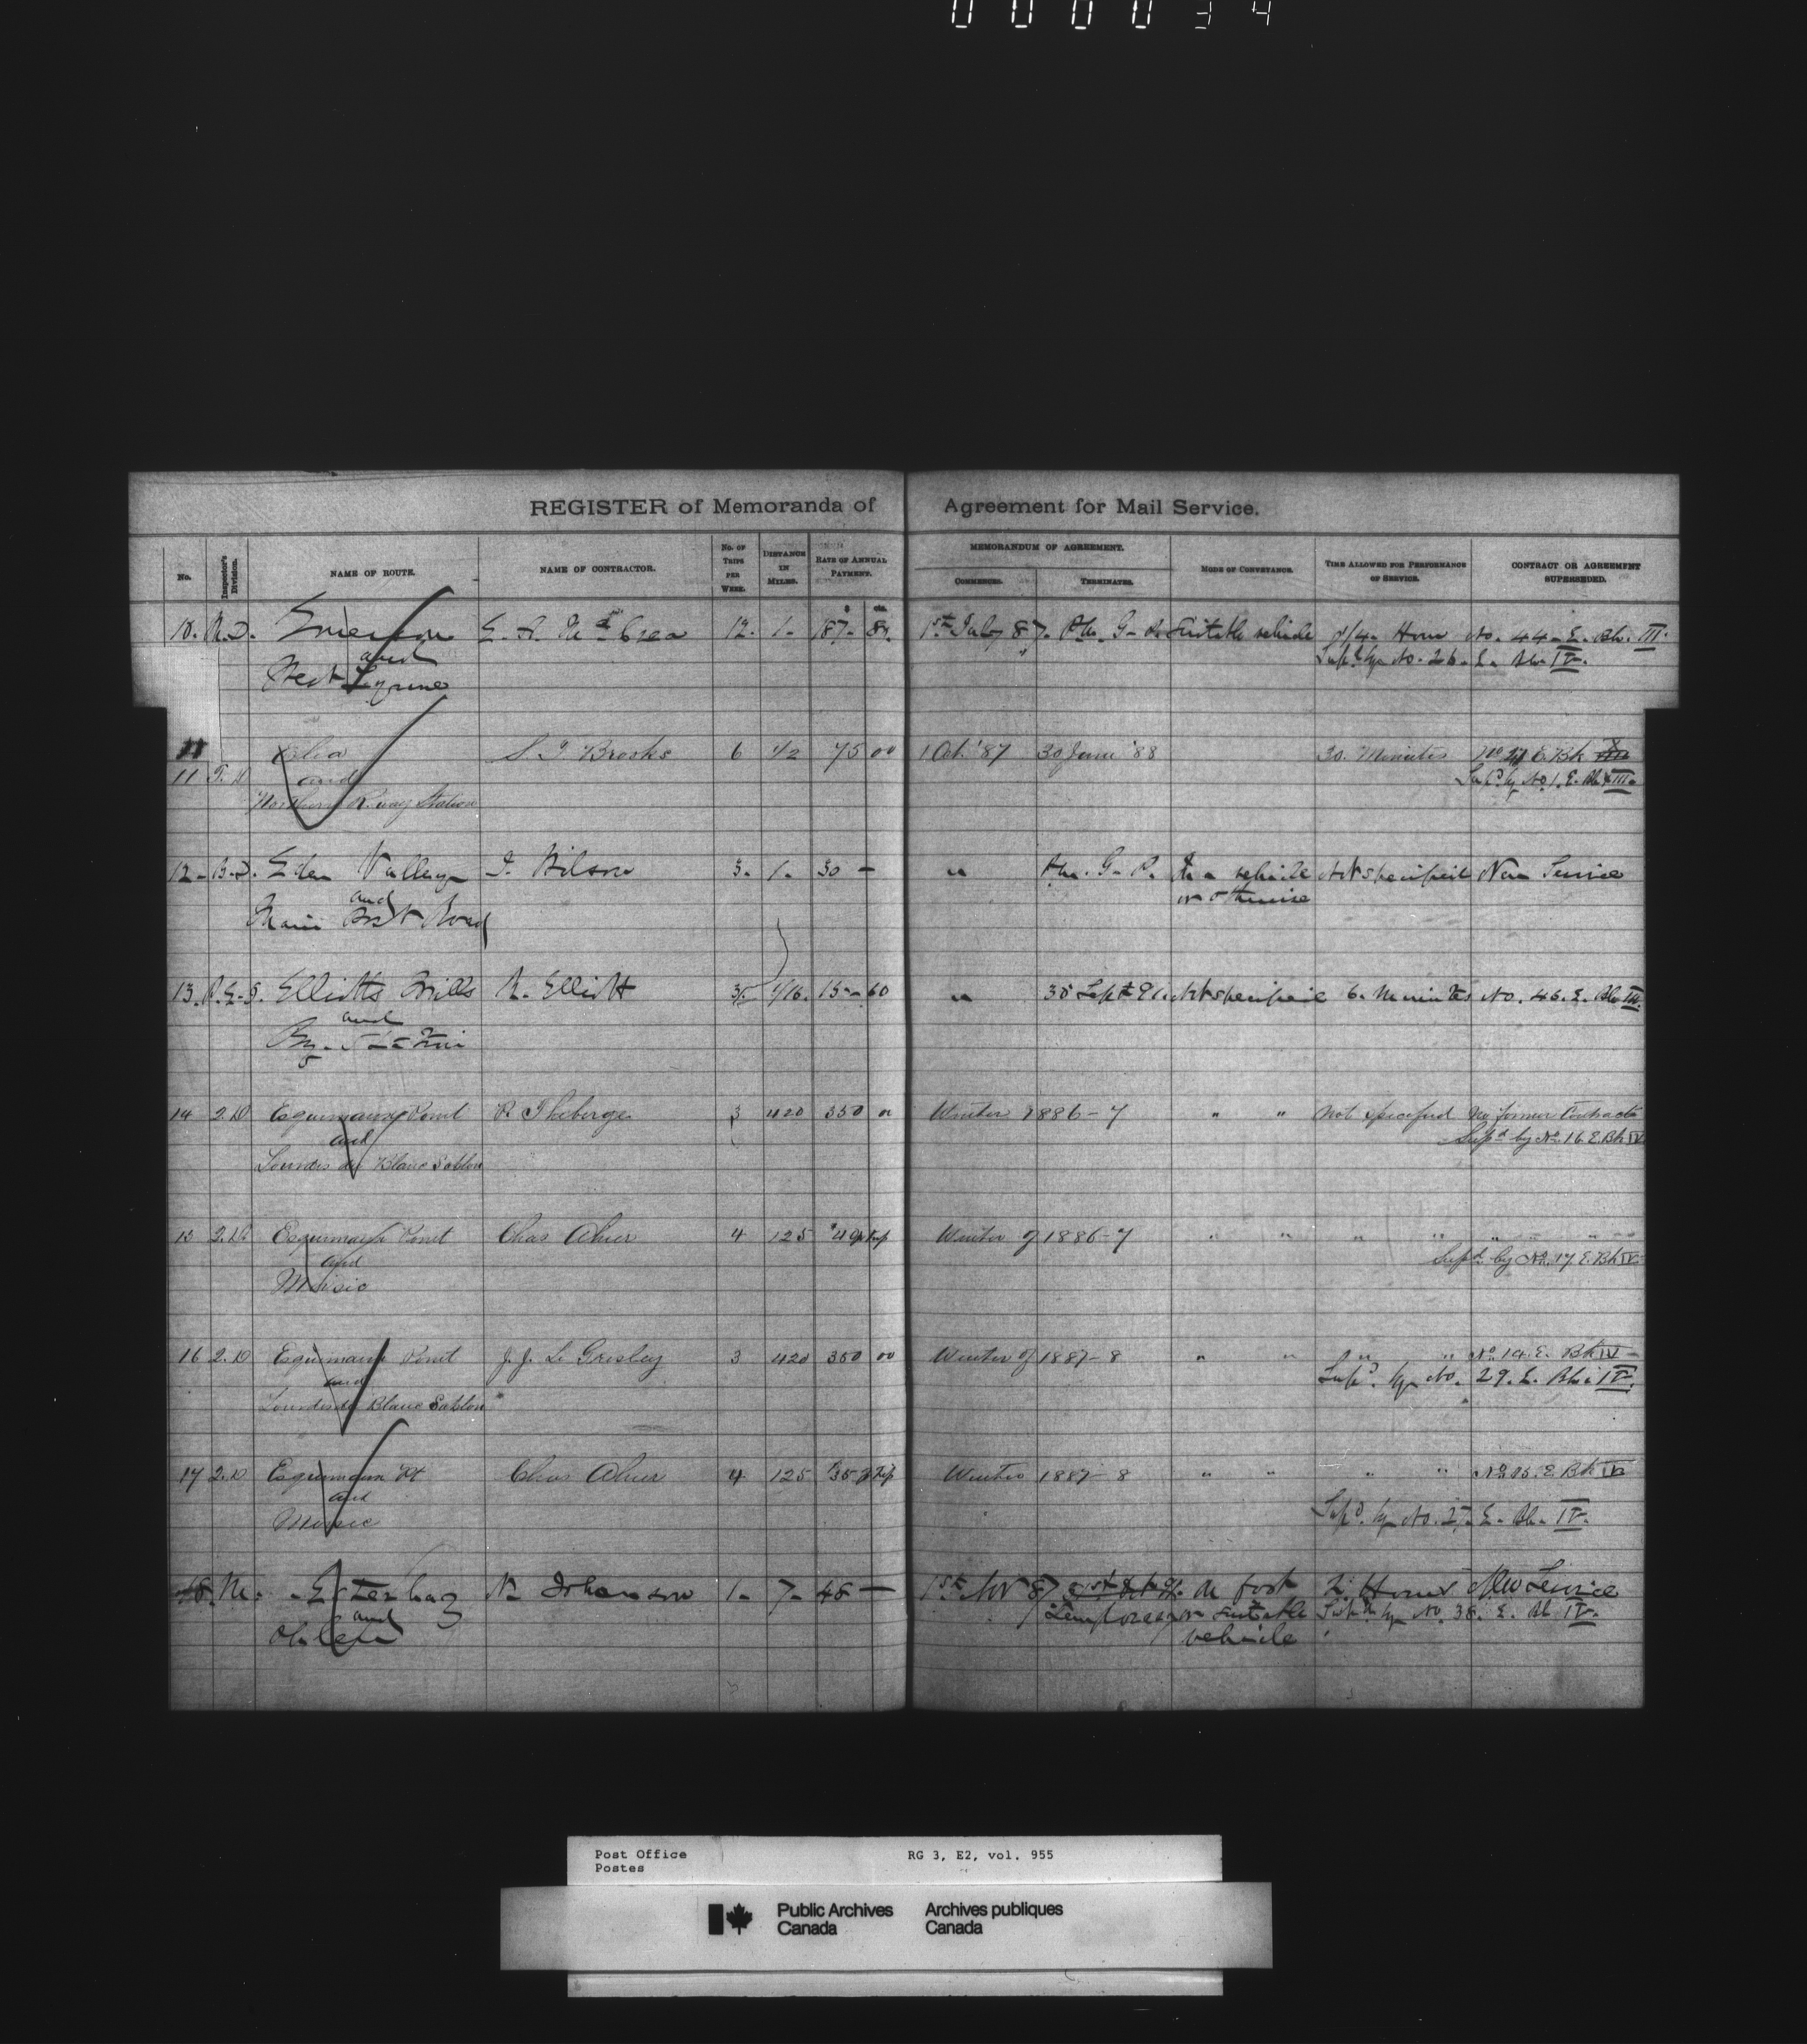 000034
REGISTER of Memoranda of Agreement for Mail Service.
No. Inspector's Division. NAME OF ROUTE. NAME OF CONTRACTOR. No. OF TRIPS PER WEEK. DISTANCE IN MILES. RATE OF ANNUAL PAYMENT. MEMORANDUM OF AGREEMENT. COMMENCES. TERMINATES. MODE OF CONVEYANCE. TIME ALLOWED FOR PERFORMANCE OF SERVICE. CONTRACT OR AGREEMENT SUPERSEDED.
$ cts.
10. M.D. Emerson 12. 1. 187. 1st July 87. P.M. G. Suitable vehicle 1/4 Hour No. 44. E. Bk. III
and Supd. by No. 26. E. Bk. IV.
West Lynne
11 Elia S. T. Brooks 6 1/2 75 00 1 Oct. '87 30 June '88 30. Minutes
11 T. D and Supd. by No. 1. E. Bk.
Northern R. way Station
12. B.D. Eden Valley J. Wilson 3. 1. 30 — " In a vehicle Not specified New Service
and or otherwise
Road
13. Elliotts Mills R. Elliott 1/16. 15. 60 " 30 Sept 91. Not specified 6. Minutes No. 46. E. Bk III.
and
14 2. D Esquimaux Point P. Theberge 3 420 350 00 Winter 1886-7 " " Not specified No former Contract
and Supd by No. 16 E Bk IV
Lourdes du Blanc Sablon
15 2. D. Esquimaux Point Chas 4 125 Winter of 1886-7 " " " " " " "
and Supd. by No. 17. E. Bk IV.
Moisic
16 2. D Esquimaux Point J. J. Le Gresley 3 420 350 00 Winter of 1887-8 " " " " No. 14. E. Bk IV
and Supd. by No. 29. E. Bk. IV.
Lourdes du Blanc Sablon
17 2. D Esquimaux Pt Chas 4 125 Winter 1887-8 " " " " No 15. E Bk IV
and
Moisic Supd. by No. 27. E. Bk. IV.
18. M. Esterhaz N. Johanson 1. 7. 48 — 1st Nov 87 On foot 2 Hours New Service
and Temporary or suitable Supd. by No. 38. E. Bk IV.
Ohlen vehicle
Post Office RG 3, E2, vol. 955
Postes
Public Archives Archives publiques
Canada Canada